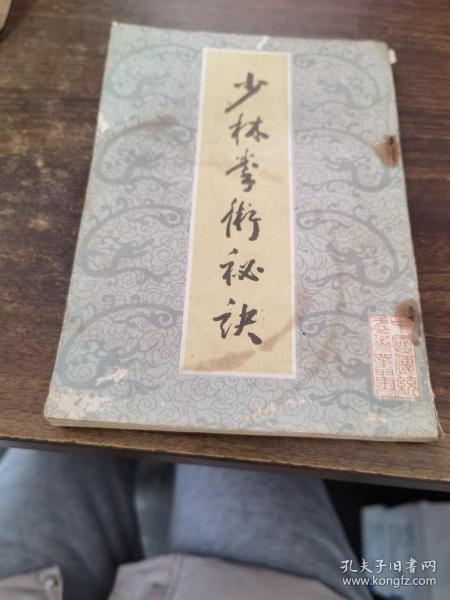 少林拳術秘訣
中國傳統
武術叢書
孔夫子旧书网
www.kongfz.com